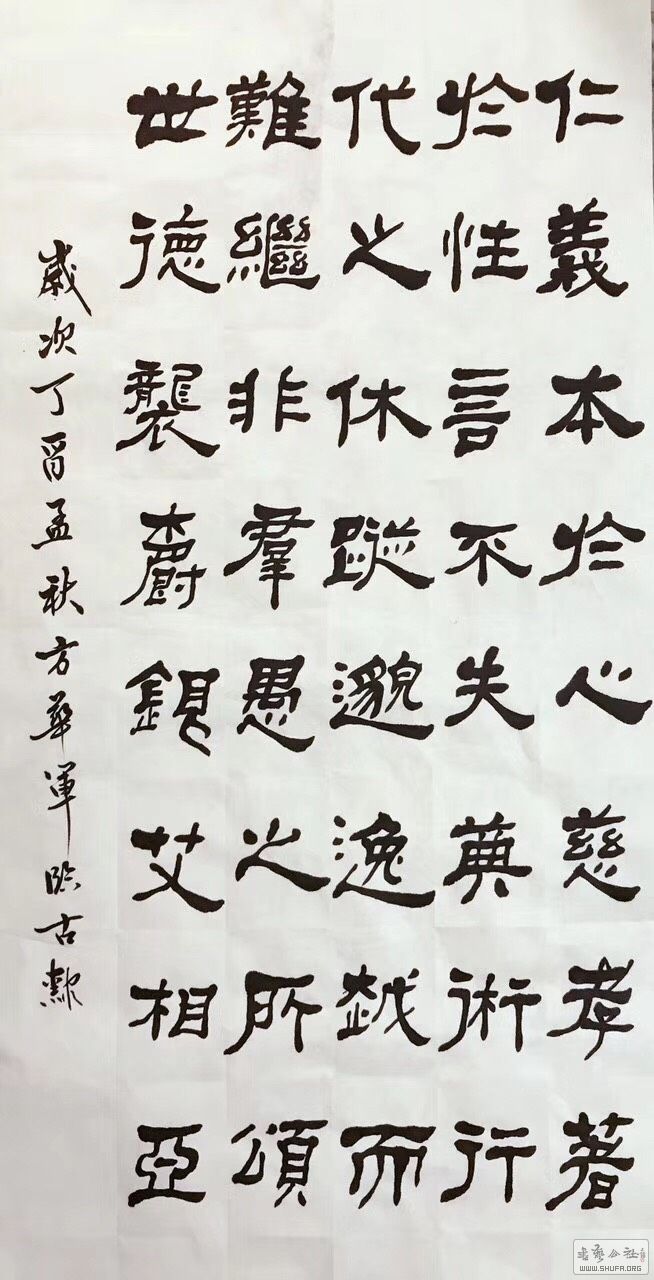 仁義本於心慈孝著
於性言不失典術行
代之休蹤邈逸越而
難繼非群愚之所頌
世德襲爵銀艾相亞
歲次丁酉孟秋方華軍臨古歙
書藝公社
WWW.SHUFA.ORG